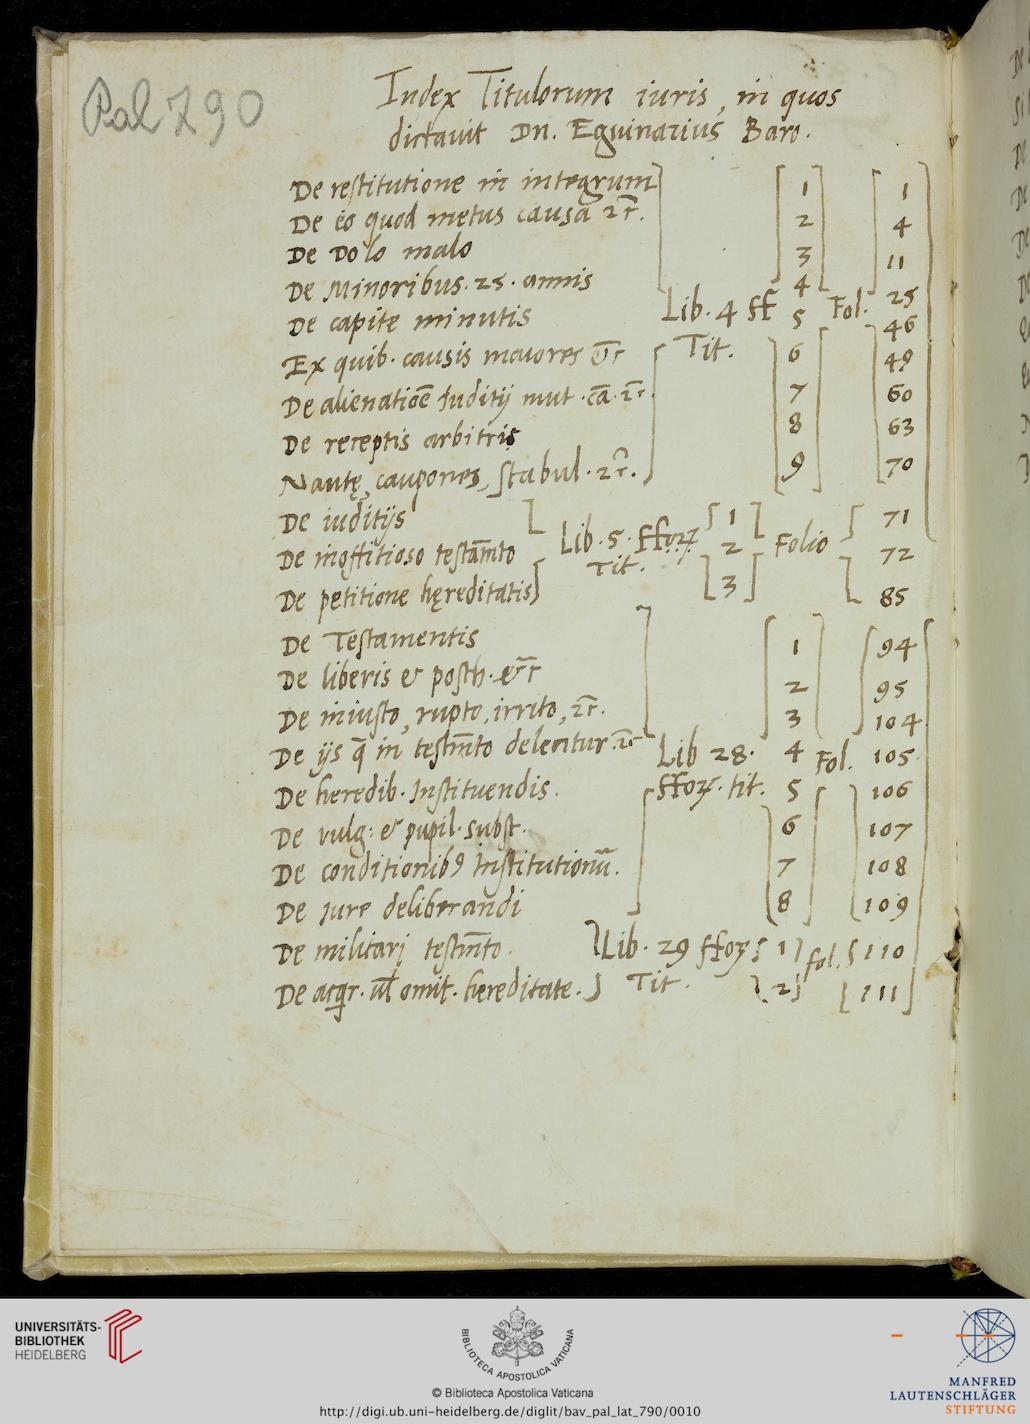 Pal 790
Index Titulorum iuris, in quos
dictavit Dn. Eguinarius Baro.
De restitutione in integrum 1 1
De eo quod metus causa 2c̄. 2 4
De Dolo malo 3 11
De Minoribus. 25. annis 4 25
De capite minutis Lib. 4 ff Tit. 5 Fol. 46
Ex quib. causis maiores 6 49
De alienatiōe Juditij mut. cā. 2c̄. 7 60
De receptis arbitris 8 63
Nautę, caupones, stabul. 2c̄. 9 70
De iuditijs 1 71
De inoffitioso testām̄to Lib. 5. ffoꝝ Tit. 2 Folio 72
De petitione hęreditatis 3 85
De Testamentis 1 94
De liberis & posth. &c̄ 2 95
De iniusto, rupto, irrito, 2c̄. 3 104
De ijs q̄ in testm̄to delentur 2c̄ Lib 28. 4 Fol. 105
De heredib. Instituendis. ffoꝝ. tit. 5 106
De vulg: & pupil. subst. 6 107
De conditionibꝰ Institutionū. 7 108
De jure deliberandi 8 109
De militarj testm̄to. Lib. 29 ffoꝝ 1 fol. 110
De acqr. ul̄ omit. hereditate. Tit. 2 111
UNIVERSITÄTS-
BIBLIOTHEK
HEIDELBERG
BIBLIOTECA APOSTOLICA VATICANA
© Biblioteca Apostolica Vaticana
http://digi.ub.uni-heidelberg.de/diglit/bav_pal_lat_790/0010
MANFRED
LAUTENSCHLÄGER
STIFTUNG